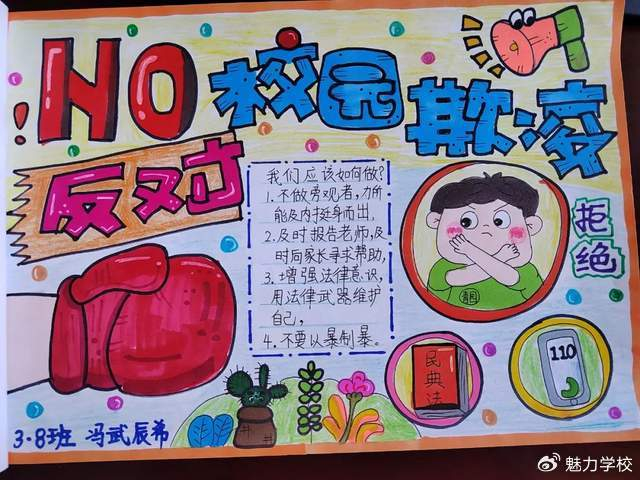 NO 校园欺凌
反对
我们应该如何做?
1.不做旁观者,力所
能及内挺身而出,
2.及时报告老师,及
时向家长寻求帮助,
3.增强法律意识,
用法律武器维护
自己,
4.不要以暴制暴。
拒绝
民典法
110
3·8班 冯武辰希
魅力学校